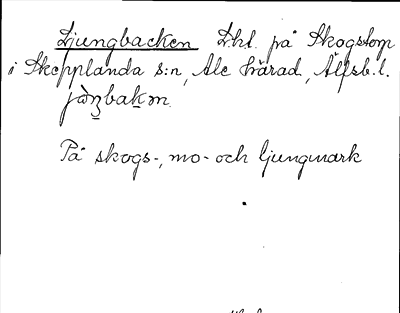 Ljungbacken Lht på Skogstorp
i Skepplanda s:n, Ale härad, Älfsb. l.
På skogs-, mo- och ljungmark